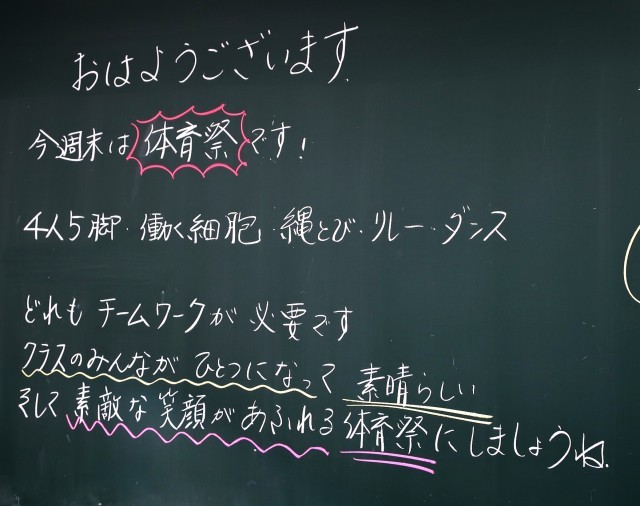 おはようございます.
今週末は体育祭です!
4人5脚・働く細胞・縄とび・リレー・ダンス
どれもチームワークが必要です
クラスのみんながひとつになって素晴らしい
そして素敵な笑顔があふれる体育祭にしましょうね.